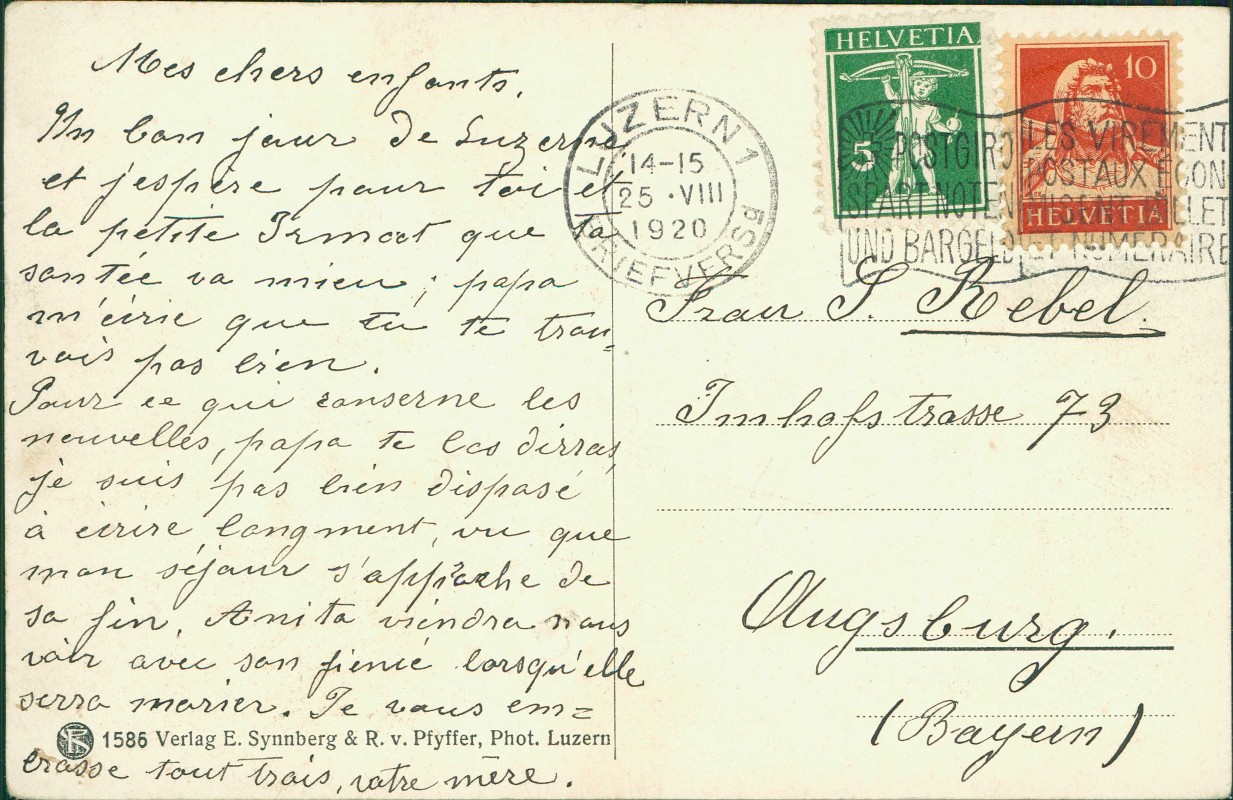 Mes chers enfants.
Un bon jour de Luzerne,
et j'espère pour toi et
la petite Irmat que ta
santée va mieu; papa
m'écrie que tu te trou=
vais pas bien.
Pour ce qui conserne les
nouvelles, papa te les dirras,
je suis pas bien disposé
à écrire longment, vu que
mon séjour s'approche de
sa fin, Anita viendra nous
voir avec son fiencé lorsqu'elle
serra marier. Je vous em=
brasse tout trois, votre mère.
1586 Verlag E. Synnberg & R. v. Pfyffer, Phot. Luzern
LUZERN 1
14-15
25 · VIII
1920
BRIEFVERSD
HELVETIA
5
10
HELVETIA
POSTGIRO
SPART NOTEN
UND BARGELD
LES VIREMENT
POSTAUX ECON
MISENT BILLET
ET NUMERAIRE
Frau S. Rebel.
Imhofstrasse 73
Augsburg.
(Bayern)